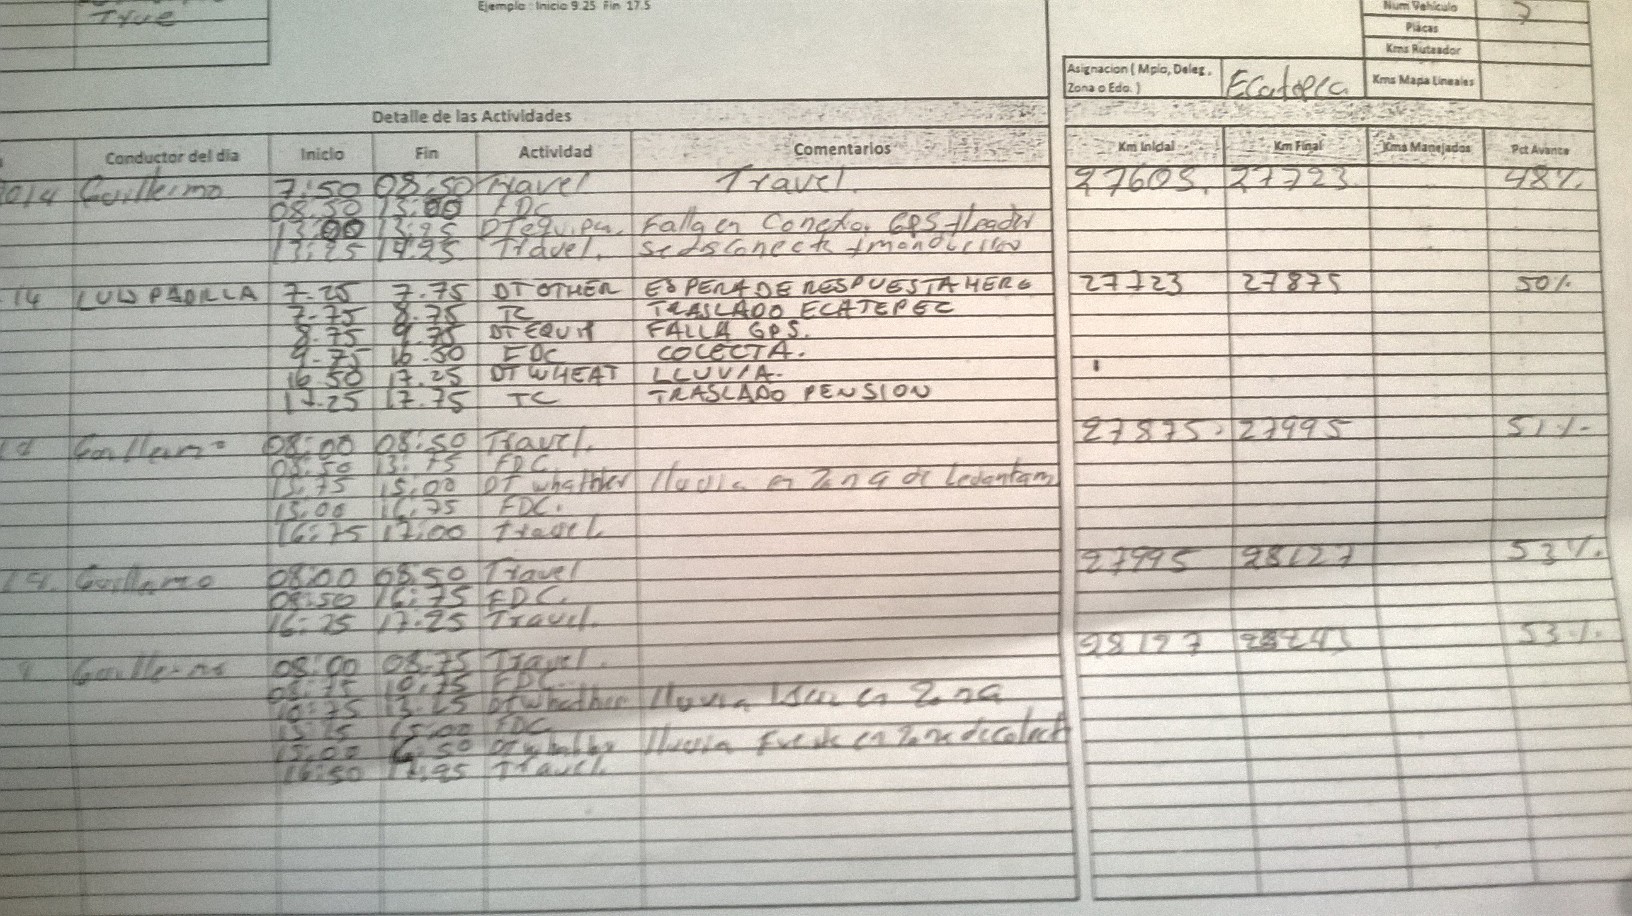 True
Ejemplo: Inicio 9.25 Fin 17.5
Num Vehículo 7
Plácas
Kms Ruteador
Asignacion ( Mpio, Deleg, Zona o Edo. ) Kms Mapa Lineales
Detalle de las Actividades
Conductor del día Inicio Fin Actividad Comentarios Km Inicial Km Final Kms Manejados Pct Avance
014 Guillermo 7:50 08:50 Travel Travel. 27603. 27723 48%
08:50 13:00 FDC
13:00 13:25 DT equipm. Falla en GPS
13:25 Travel.
14 LUIS PADILLA 7.25 7.75 DT OTHER ESPERA DE RESPUESTA HERE 27723 27875 50%
7.75 8.75 TC TRASLADO ECATEPEC
8.75 9.75 DT EQUIP FALLA GPS.
9.75 16.50 FDC COLECTA.
16.50 17.25 DT WHEAT LLUVIA.
17.25 17.75 TC TRASLADO PENSION
Guillermo 08:00 08:50 Travel. 27875 27995 51%
08:50 13:75 FDC
13:75 15:00 DT whather lluvia en Zona de Levantam
15:00 16:75 FDC.
16:75 17:00 Travel.
Guillermo 08:00 08:50 Travel 27995 28127 53%
08:50 16:75 FDC.
17:25 Travel.
Guillermo 08:00 08:75 Travel. 28127 53%
08:75 10:75 FDC
10:75 DT whather lluvia en Zona
15:00 FDC
15:00 16:50 DT whather lluvia en Zona de colecta
16:50 Travel.